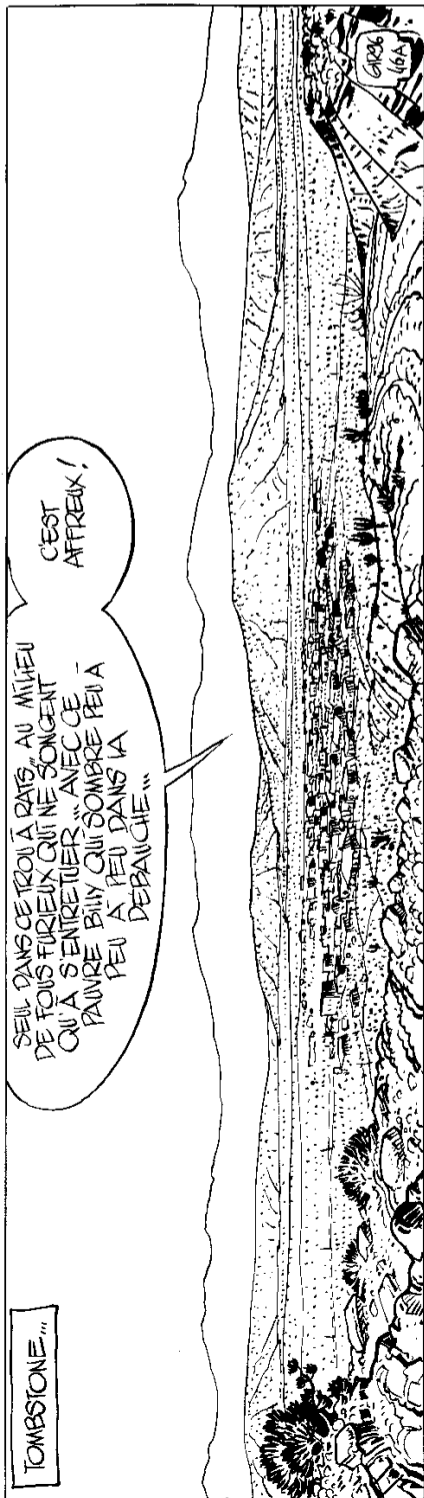 TOMBSTONE...
SEUL DANS CE TROU À RATS... AU MILIEU
DE FOUS FURIEUX QUI NE SONGENT
QU'À S'ENTRETUER... AVEC CE
PAUVRE BILLY QUI SOMBRE PEU À
PEU À PEU DANS LA
DÉBAUCHE...
C'EST
AFFREUX!
GIR96
46A